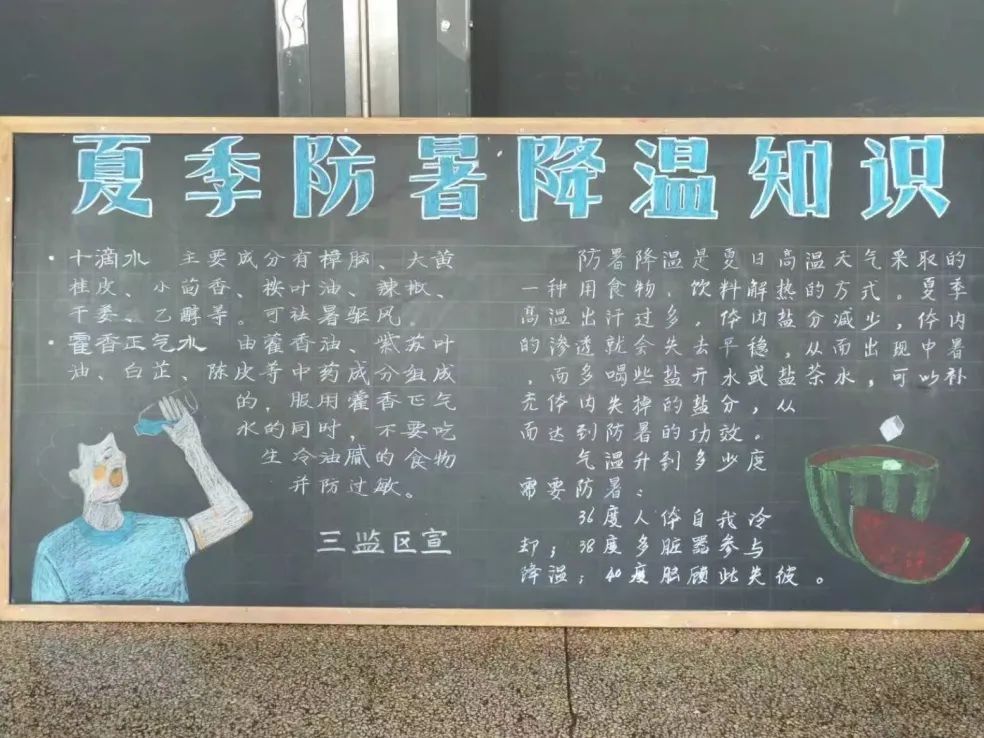 夏季防暑降温知识
·十滴水 主要成分有樟脑、大黄
桂皮、小茴香、桉叶油、辣椒、
干姜、乙醇等。可祛暑驱风。
·霍香正气水 由藿香油、紫苏叶
油、白芷、陈皮等中药成分组成
的，服用藿香正气
水的同时，不要吃
生冷油腻的食物
并防过敏。
三监区宣
防暑降温是夏日高温天气采取的
一种用食物、饮料解热的方式。夏季
高温出汗过多，体内盐分减少，体内
的渗透就会失去平稳，从而出现中暑
，而多喝些盐开水或盐茶水，可以补
充体内失掉的盐分，从
而达到防暑的功效。
气温升到多少度
需要防暑：
36度人体自我冷
却；38度多脏器参与
降温；40度脑顾此失彼。